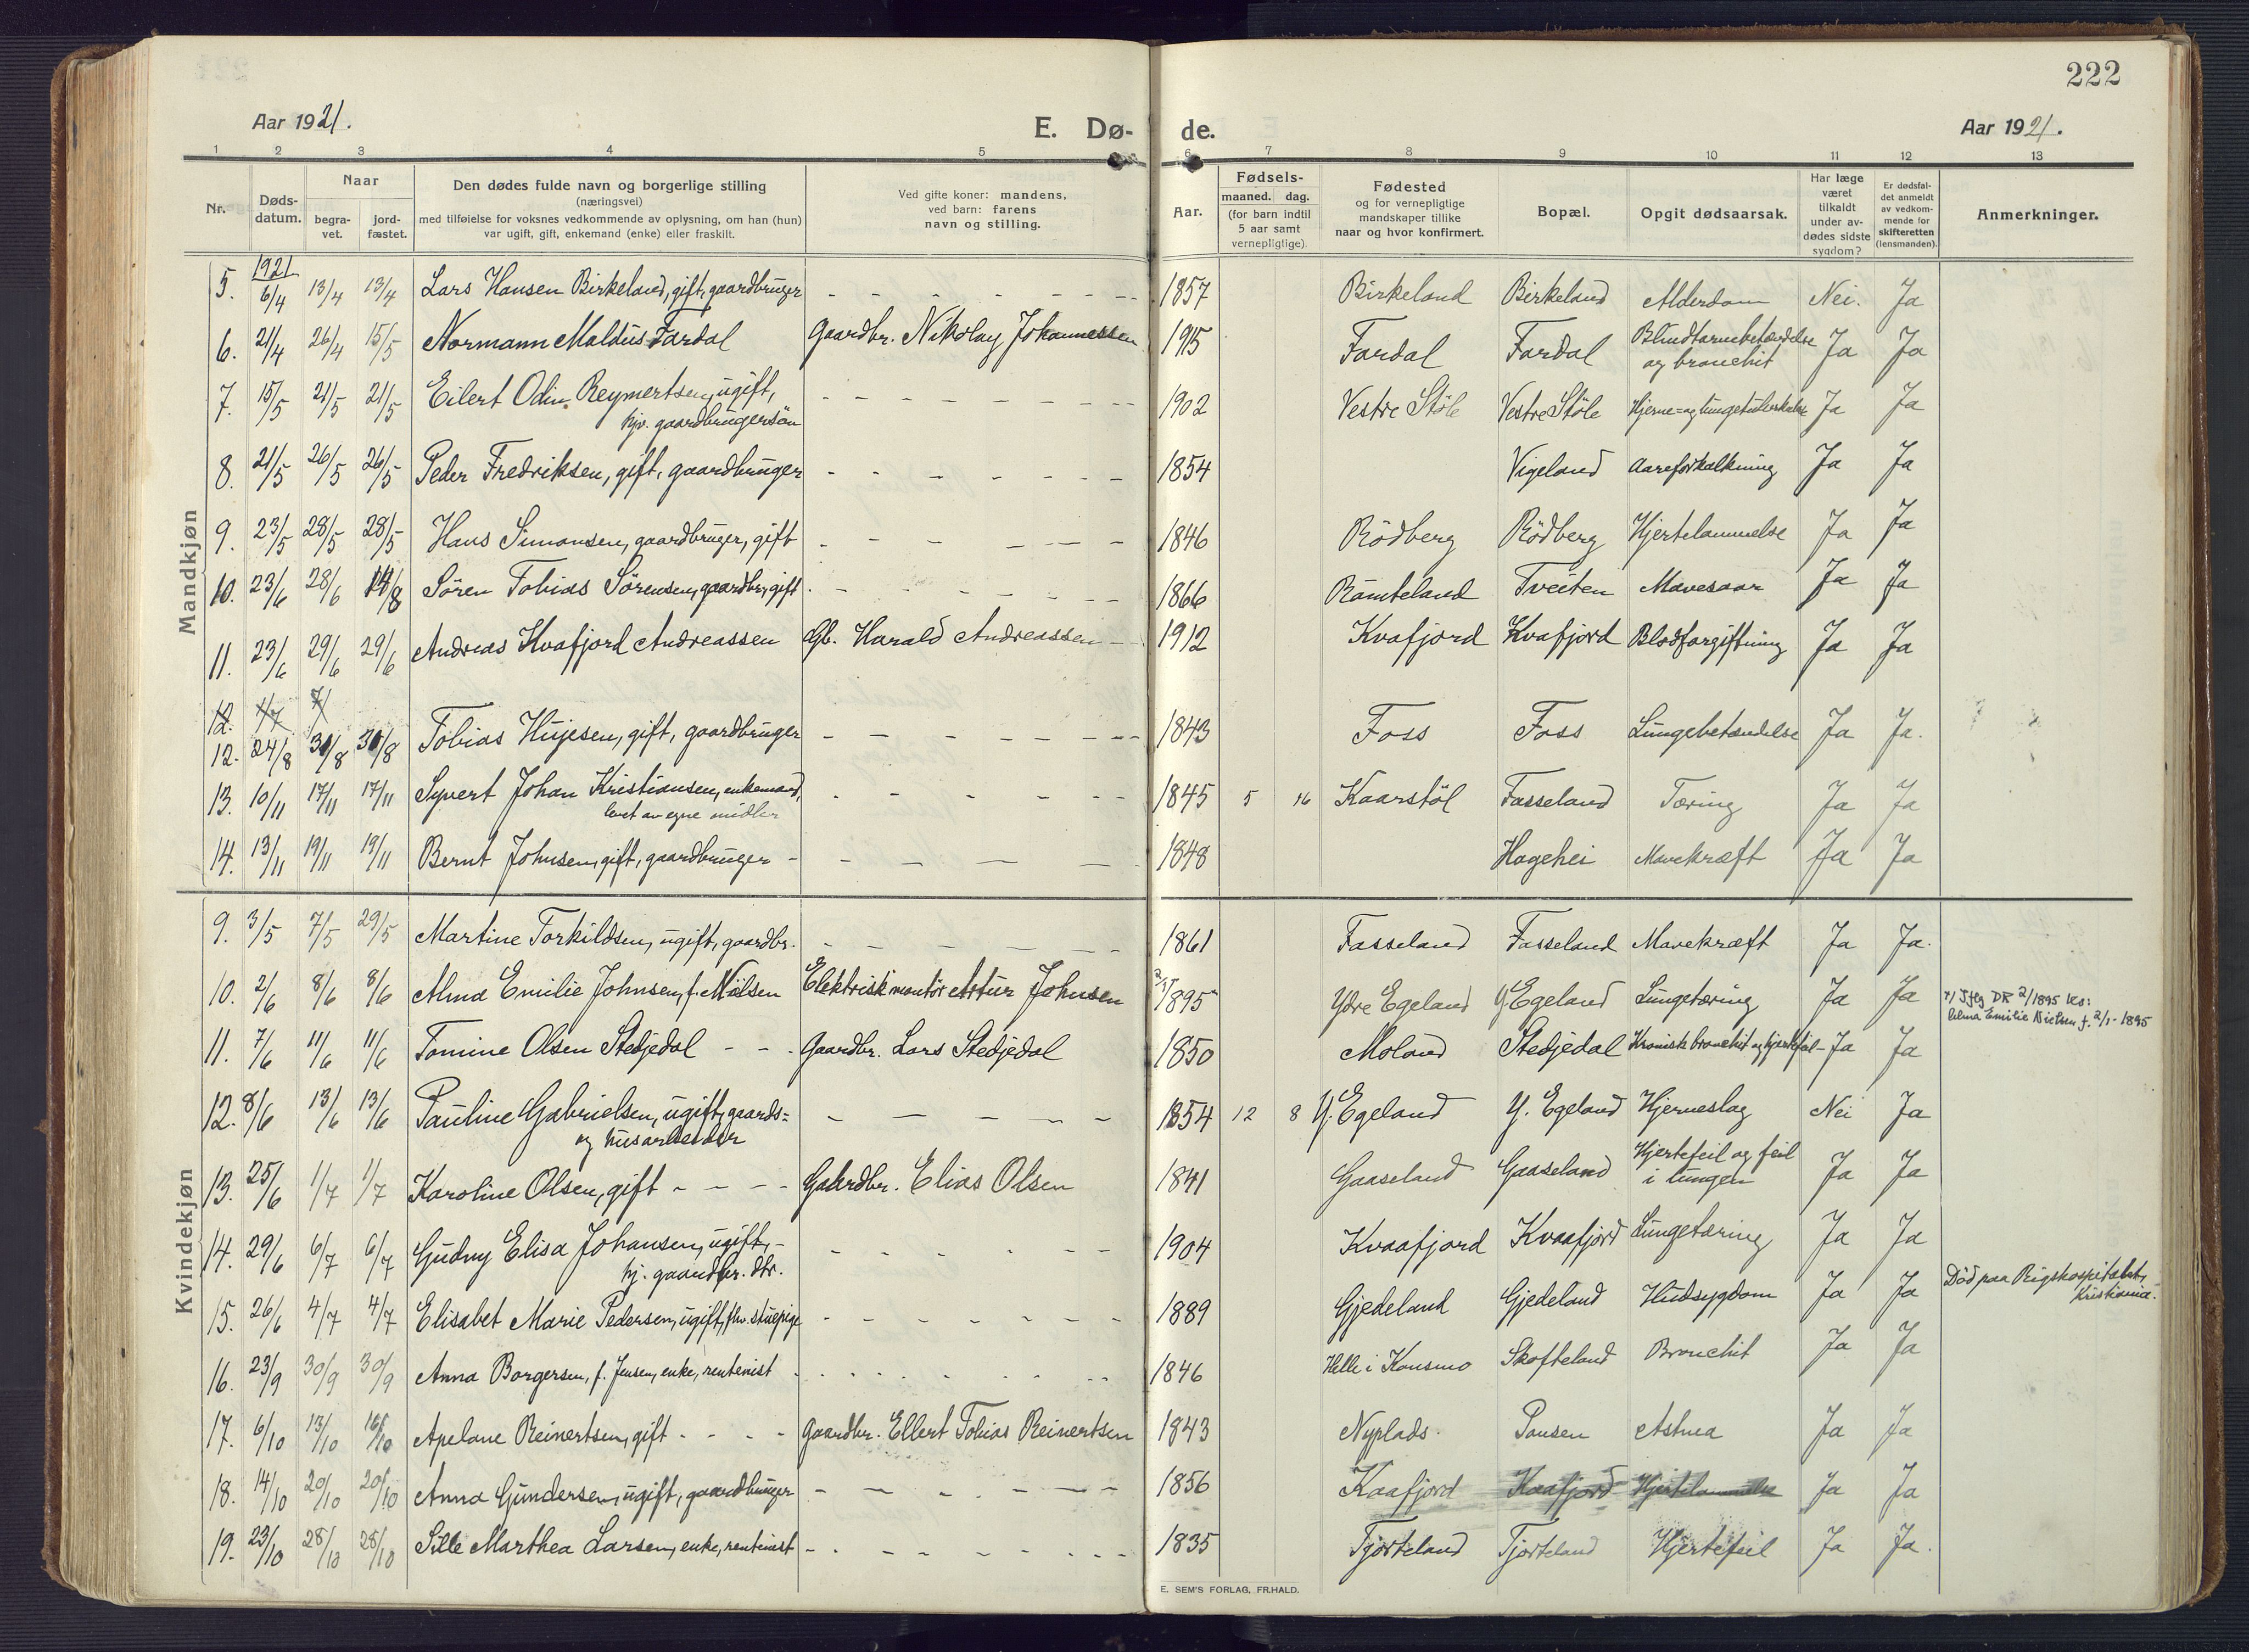 222
Aar 1921.
E. Dø-
de.
Aar 1921.
1 2 3 4 5 6 7 8 9 10 11 12 13
Nr.
Døds-
datum.
Naar
begra-
vet.
jord-
fæstet.
Den dødes fulde navn og borgerlige stilling
(næringsvei)
med tilføielse for voksnes vedkommende av oplysning, om han (hun)
var ugift, gift, enkemand (enke) eller fraskilt.
Ved gifte koner: mandens,
ved barn: farens
navn og stilling.
Aar.
Fødsels-
maaned. dag.
(for barn indtil
5 aar samt
vernepligtige).
Fødested
og for vernepligtige
mandskaper tillike
naar og hvor konfirmert.
Bopæl.
Opgit dødsaarsak.
Har læge
været
tilkaldt
under av-
dødes sidste
sygdom?
Er dødsfal-
det anmeldt
av vedkom-
mende for
skifteretten
(lensmanden).
Anmerkninger.
Mandkjøn
1921
5. 6/4 13/4 13/4 Lars Hansen Birkeland, gift, gaardbruger - - - - - - 1857 Birkeland Birkeland Alderdom Nei. Ja
6. 21/4 26/4 15/5 Normann Maldus Fardal Gaardbr. Nikolay Johannessen 1915 Fardal Fardal Blindtarmbetændelse Ja Ja
og bronchit
7. 15/5 21/5 21/5 Eilert Odin Reymertsen, ugift, - - - - - - 1902 Vestre Støle Vestre Støle Hjerne- og lungetuberkulose Ja Ja
hjv. gaardbrugersøn
8. 21/5 26/5 26/5 Peder Fredriksen, gift, gaardbruger - - - - - - 1854 Vigeland Aareforkalkning Ja Ja
9. 23/5 28/5 28/5 Hans Simonsen, gaardbruger, gift - - - - - - 1846 Rödberg Rödberg Hjertelammelse Ja Ja
10. 23/6 28/6 14/8 Sören Tobias Sörensen, gaardbr, gift - - - - - - 1866 Ramteland Tveiten Mavesaar Ja Ja
11. 23/6 29/6 29/6 Andreas Kvafjord Andreassen Gb. Harald Andreassen - 1912 Kvafjord Kvafjord Blodforgiftning Ja Ja
12. 1/7 7/
12. 24/8 31/8 31/8 Tobias Hujesen, gift, gaardbruger - - - - - - 1843 Foss Foss Lungebetændelse Ja Ja.
13. 10/11 17/11 17/11 Syvert Johan Kristiansen, enkemand, - - - - - - 1845 5 16 Kaarstöl Fasseland Tæring Ja Ja
levet av egne midler
14. 13/11 19/11 19/11 Bernt Johnsen, gift, gaardbruger - - - - - 1848 Hagehei Mavekræft Ja Ja
Kvindekjøn
9. 3/5 7/5 29/5 Martine Torkildsen, ugift, gaardbr. - - - - - - 1861 Fasseland Fasseland Mavekræft Ja Ja.
10. 2/6 8/6 8/6 Alma Emilie Johnsen, f. Nilsen Elektrisk montör Artur Johnsen 2/1 1895 Ydre Egeland Y. Egeland Lungetæring Ja Ja
DR 2/1895
Emilie Nielsen f. 2/1-1895
11. 7/6 11/6 11/6 Tomine Olsen Stedjedal - - - Gaardbr. Lars Stedjedal 1850 Moland Stedjedal Kronisk bronchit og hjertefeil - Ja Ja
12. 8/6 13/6 13/6 Pauline Gabrielsen, ugift, gaards= - - - - - 1854 12 8 Y. Egeland Y. Egeland Hjerneslag Nei Ja
og husarbeider
13. 25/6 1/7 1/7 Karoline Olsen, gift - - - - Gaardbr. Elias Olsen 1841 Gaaseland Gaaseland Hjertefeil og feil Ja Ja
i lungen
14. 29/6 6/7 6/7 Gudny Elisa Johansen, ugift, - - - - - - - 1904 Kvaafjord Kvaafjord Lungetæring Ja Ja
hj. gaardbr. dtr.
15. 26/6 4/7 4/7 Elisabet Marie Pedersen, ugift, fhv. stuepige - - - - - - 1889 Gjedeland Gjedeland Hudsygdom Ja Ja Död paa Rigshospitalet,
Kristiania.
16. 23/9 30/9 30/9 Anna Borgersen, f. Jensen, enke, rentenist - - - - - - 1846 Helle i Konsmo Skofteland Bronchit Ja Ja
17. 6/10 13/10 16/10 Apelone Reinertsen, gift - - - - Gaardbr. Ellert Tobias Reinertsen 1843 Nyplads Pausen Astma Ja Ja
18. 14/10 20/10 20/10 Anna Gundersen, ugift, gaardbruger - - - - - - 1856 Kaafjord Kaafjord Hjertelammelse Ja Ja
19. 23/10 28/10 28/10 Sille Marthea Larsen, enke, rentenist - - - - - - 1835 Tjorteland Tjorteland Hjertefeil Ja Ja.
E. SEM'S FORLAG, FR.HALD.